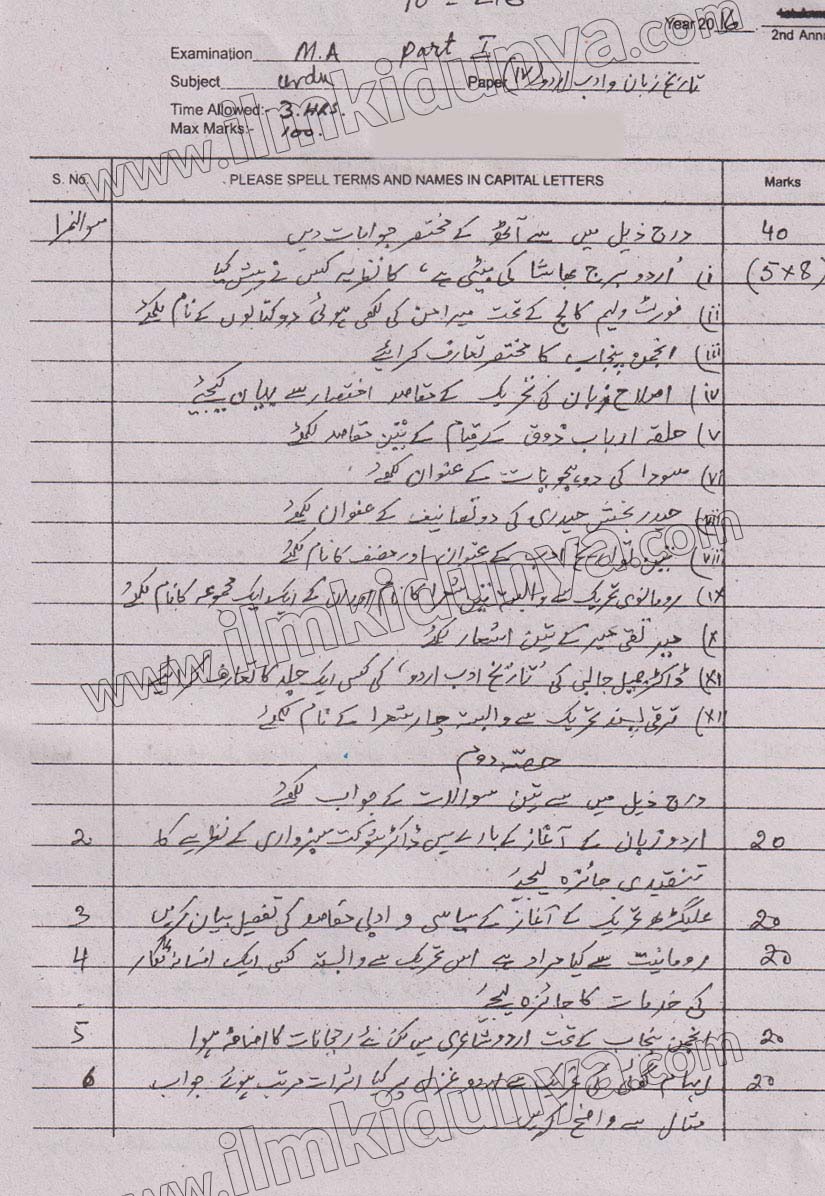 Year 2016
1st Annu
2nd Annu
Examination M.A Part I
Subject urdu Paper (IV) تاریخ زبان و ادب اردو
Time Allowed:- 3 HRS.
Max Marks:- 100.
S. No. PLEASE SPELL TERMS AND NAMES IN CAPITAL LETTERS Marks
سوالنمبر1 درج ذیل میں سے آٹھ کے مختصر جوابات دیں 40
i) ’اردو برج بھاشا کی بیٹی ہے‘ کا نظریہ کس نے پیش کیا (5×8)
ii) فورٹ ولیم کالج کے تحت میرامن کی لکھی ہوئی دو کتابوں کے نام لکھئے
iii) انجمن پنجاب کا مختصر تعارف کرائیے
iv) اصلاح زبان کی تحریک کے مقاصد اختصار سے بیان کیجیے
v) حلقہ ارباب ذوق کے قیام کے تین مقاصد لکھئے
vi) سودا کی دو ہجویات کے عنوان لکھئے
vii) حیدر بخش حیدری کی دو تصانیف کے عنوان لکھئے
viii) تین تواریخ ادب کے عنوان اور مصنف کا نام لکھئے
ix) رومانوی تحریک سے وابستہ تین شعرا کا نام اور ان کے ایک ایک مجموعہ کا نام لکھئے
x) میر تقی میر کے تین اشعار لکھئے
xi) ڈاکٹر جمیل جالبی کی ’تاریخ ادب اردو‘ کی کسی ایک جلد کا تعارف کرائیے
xii) ترقی پسند تحریک سے وابستہ چار شعرا کے نام لکھئے
حصہ دوم
درج ذیل میں سے تین سوالات کے جواب لکھئے
2 اردو زبان کے آغاز کے بارے میں ڈاکٹر شوکت سبزواری کے نظریے کا 20
تنقیدی جائزہ لیجیے
3 علیگڑھ تحریک کے آغاز کے سیاسی و ادبی مقاصد کی تفصیل بیان کریں 20
4 رومانیت سے کیا مراد ہے اس تحریک سے وابستہ کسی ایک افسانہ نگار 20
کی خدمات کا جائزہ لیجئے
5 انجمن پنجاب کے تحت اردو شاعری میں کن نئے رجحانات کا اضافہ ہوا 20
6 ایہام گوئی کی تحریک سے اردو غزل پر کیا اثرات مرتب ہوئے جواب 20
مثال سے واضح کریں
www.ilmkidunya.com
www.ilmkidunya.com
www.ilmkidunya.com